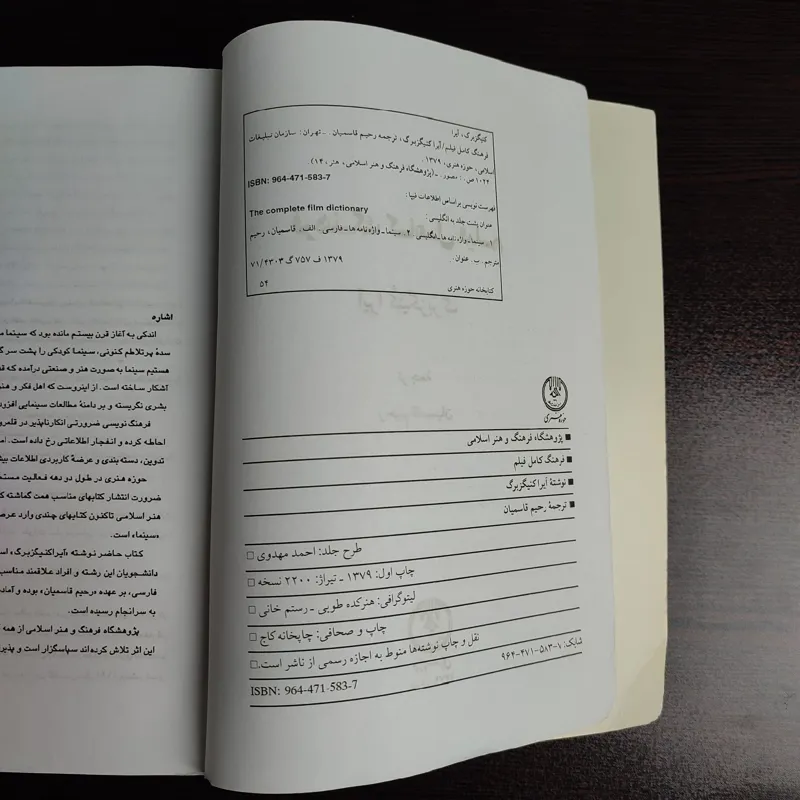 کنیگزبرگ، آیرا
فرهنگ کامل فیلم/ آیرا کنیگزبرگ، ترجمه رحیم قاسمیان . ـ تهران: سازمان تبلیغات
اسلامی، حوزه هنری، ۱۳۷۹.
۱۰۲۴ ص. : مصور. ـ (پژوهشگاه فرهنگ و هنر اسلامی، هنر، ۱۴)
ISBN: 964-471-583-7
فهرست نویسی براساس اطلاعات فیپا:
عنوان پشت جلد به انگلیسی:
The complete film dictionary
۱. سینما ـ واژه نامه ها ـ انگلیسی ۲. سینما ـ واژه نامه ها ـ فارسی. الف. قاسمیان، رحیم
مترجم. ب. عنوان.
۱۳۷۹ ف ۷۵۷ گ ۷۱/۴۳۰۳
کتابخانه حوزه هنری
۵۴
حوزه هنری
■ پژوهشگاه فرهنگ و هنر اسلامی
■ فرهنگ کامل فیلم
■ نوشتهٔ آیرا کنیگزبرگ
■ ترجمهٔ رحیم قاسمیان
طرح جلد: احمد مهدوی □
چاپ اول: ۱۳۷۹ ـ تیراژ: ۲۲۰۰ نسخه □
لیتوگرافی: هنرکده طوبی ـ رستم خانی □
چاپ و صحافی: چاپخانه کاج □
نقل و چاپ نوشته‌ها منوط به اجازه رسمی از ناشر است. □
شابک: ۷-۵۸۳-۴۷۱-۹۶۴
ISBN: 964-471-583-7
اشاره
اندکی به آغاز قرن بیستم مانده بود که سینما
سدهٔ پرتلاطم کنونی، سینما کودکی را پشت سر
هستیم سینما به صورت هنر و صنعتی درآمده که
آشکار ساخته است. از اینروست که اهل فکر و
بشری نگریسته و بر دامنهٔ مطالعات سینمایی
فرهنگ نویسی ضرورتی انکارناپذیر در
احاطه کرده و انفجار اطلاعاتی رخ داده است.
تدوین، دسته بندی و عرضهٔ کاربردی اطلاعات
حوزه هنری در طول دو دهه فعالیت
ضرورت انتشار کتابهای مناسب همت گماشته
هنر اسلامی تاکنون کتابهای چندی وارد
«سینما» است.
کتاب حاضر نوشته «آیرا کنیگزبرگ»
دانشجویان این رشته و افراد علاقمند
فارسی، بر عهده «رحیم قاسمیان» بوده و
به سرانجام رسیده است.
پژوهشگاه فرهنگ و هنر اسلامی از همه
این اثر تلاش کرده‌اند سپاسگزار است و